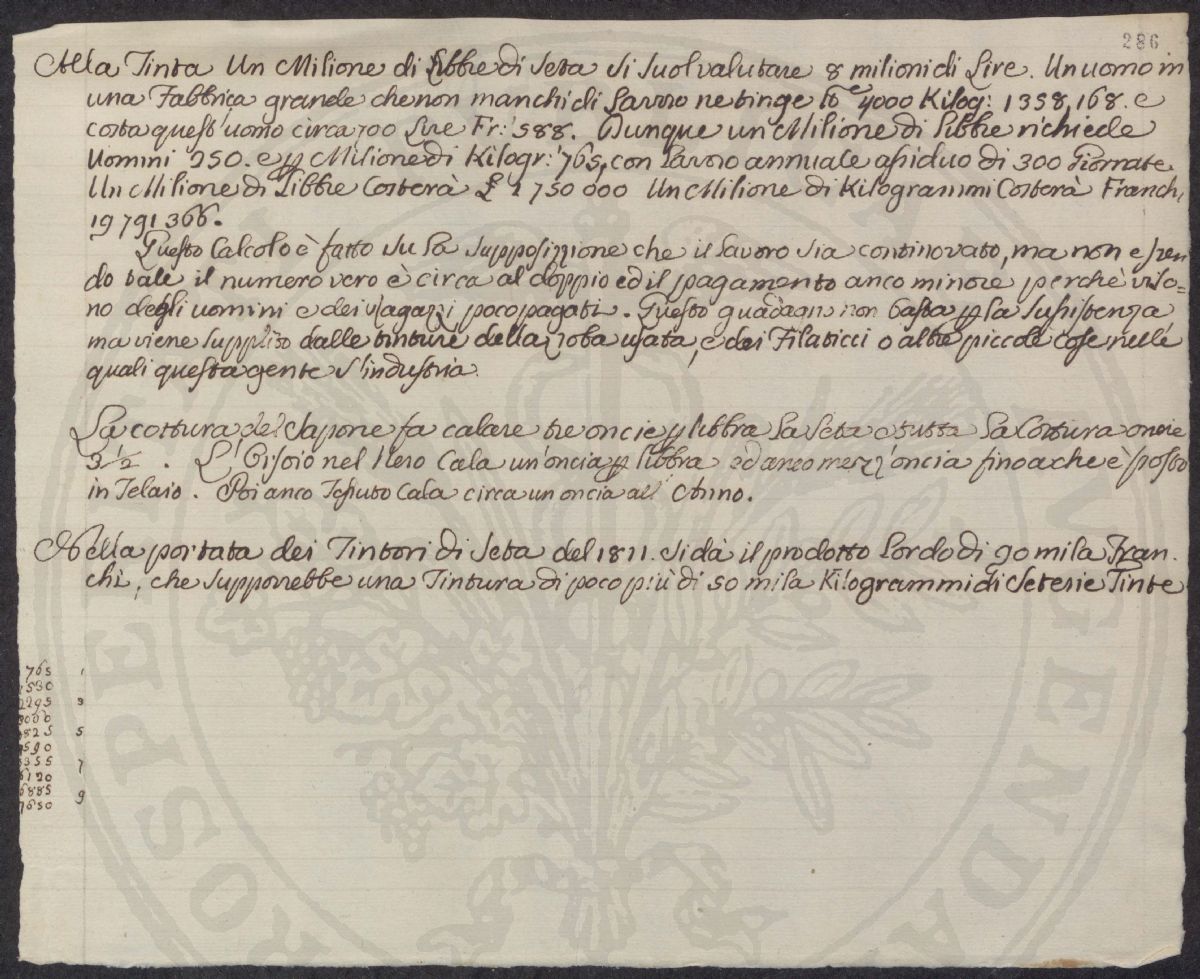 286
Alla Tinta Un Milione di Libbre di Seta si suol valutare 8 milioni di Lire. Un uomo in
una Fabbrica grande che non manchi di Lavoro ne tinge 4000 Kilog: 1358,168. e
costa quest'uomo circa 700 Lire Fr: 588. Dunque un Milione di libbre richiede
Uomini 250. e p Milione di Kilogr: 765, con Lavoro annuale assiduo di 300 Giornate
Un Milione di Libbre Costerà £ 1 750 000 Un Milione di Kilogrammi Costerà Franchi
19791366.
Questo Calcolo è fatto su la supposizzione che il lavoro sia continovato, ma non essen
do tale il numero vero è circa al doppio ed il pagamento anco minore perchè vi so=
no degli uomini e dei Ragazzi poco pagati. Questo guadagno non basta p la sussistenza
ma viene supplito dalle tinture della roba usata, e dei Filaticci o altre piccole cose nelle
quali questa gente s'industria.
La cottura del Sapone fa calare tre oncie p libbra la Seta e tutta la Cottura oncie
3 1/2. L' nel Nero Cala un'oncia p libbra ed anco mezz'oncia fino a che è posto
in Telaio. Poi anco Tessuto Cala circa un oncia all' Anno.
Nella portata dei Tintori di Seta del 1811. si dà il prodotto Lordo di 90 mila Fran.
chi, che supporrebbe una Tintura di poco più di 50 mila Kilogrammi di Seterie Tinte
765 1
1530
2295 3
3060
3825 5
4590
5355 7
6120
6885 9
7650
PROSPERITE
AUGENDAE